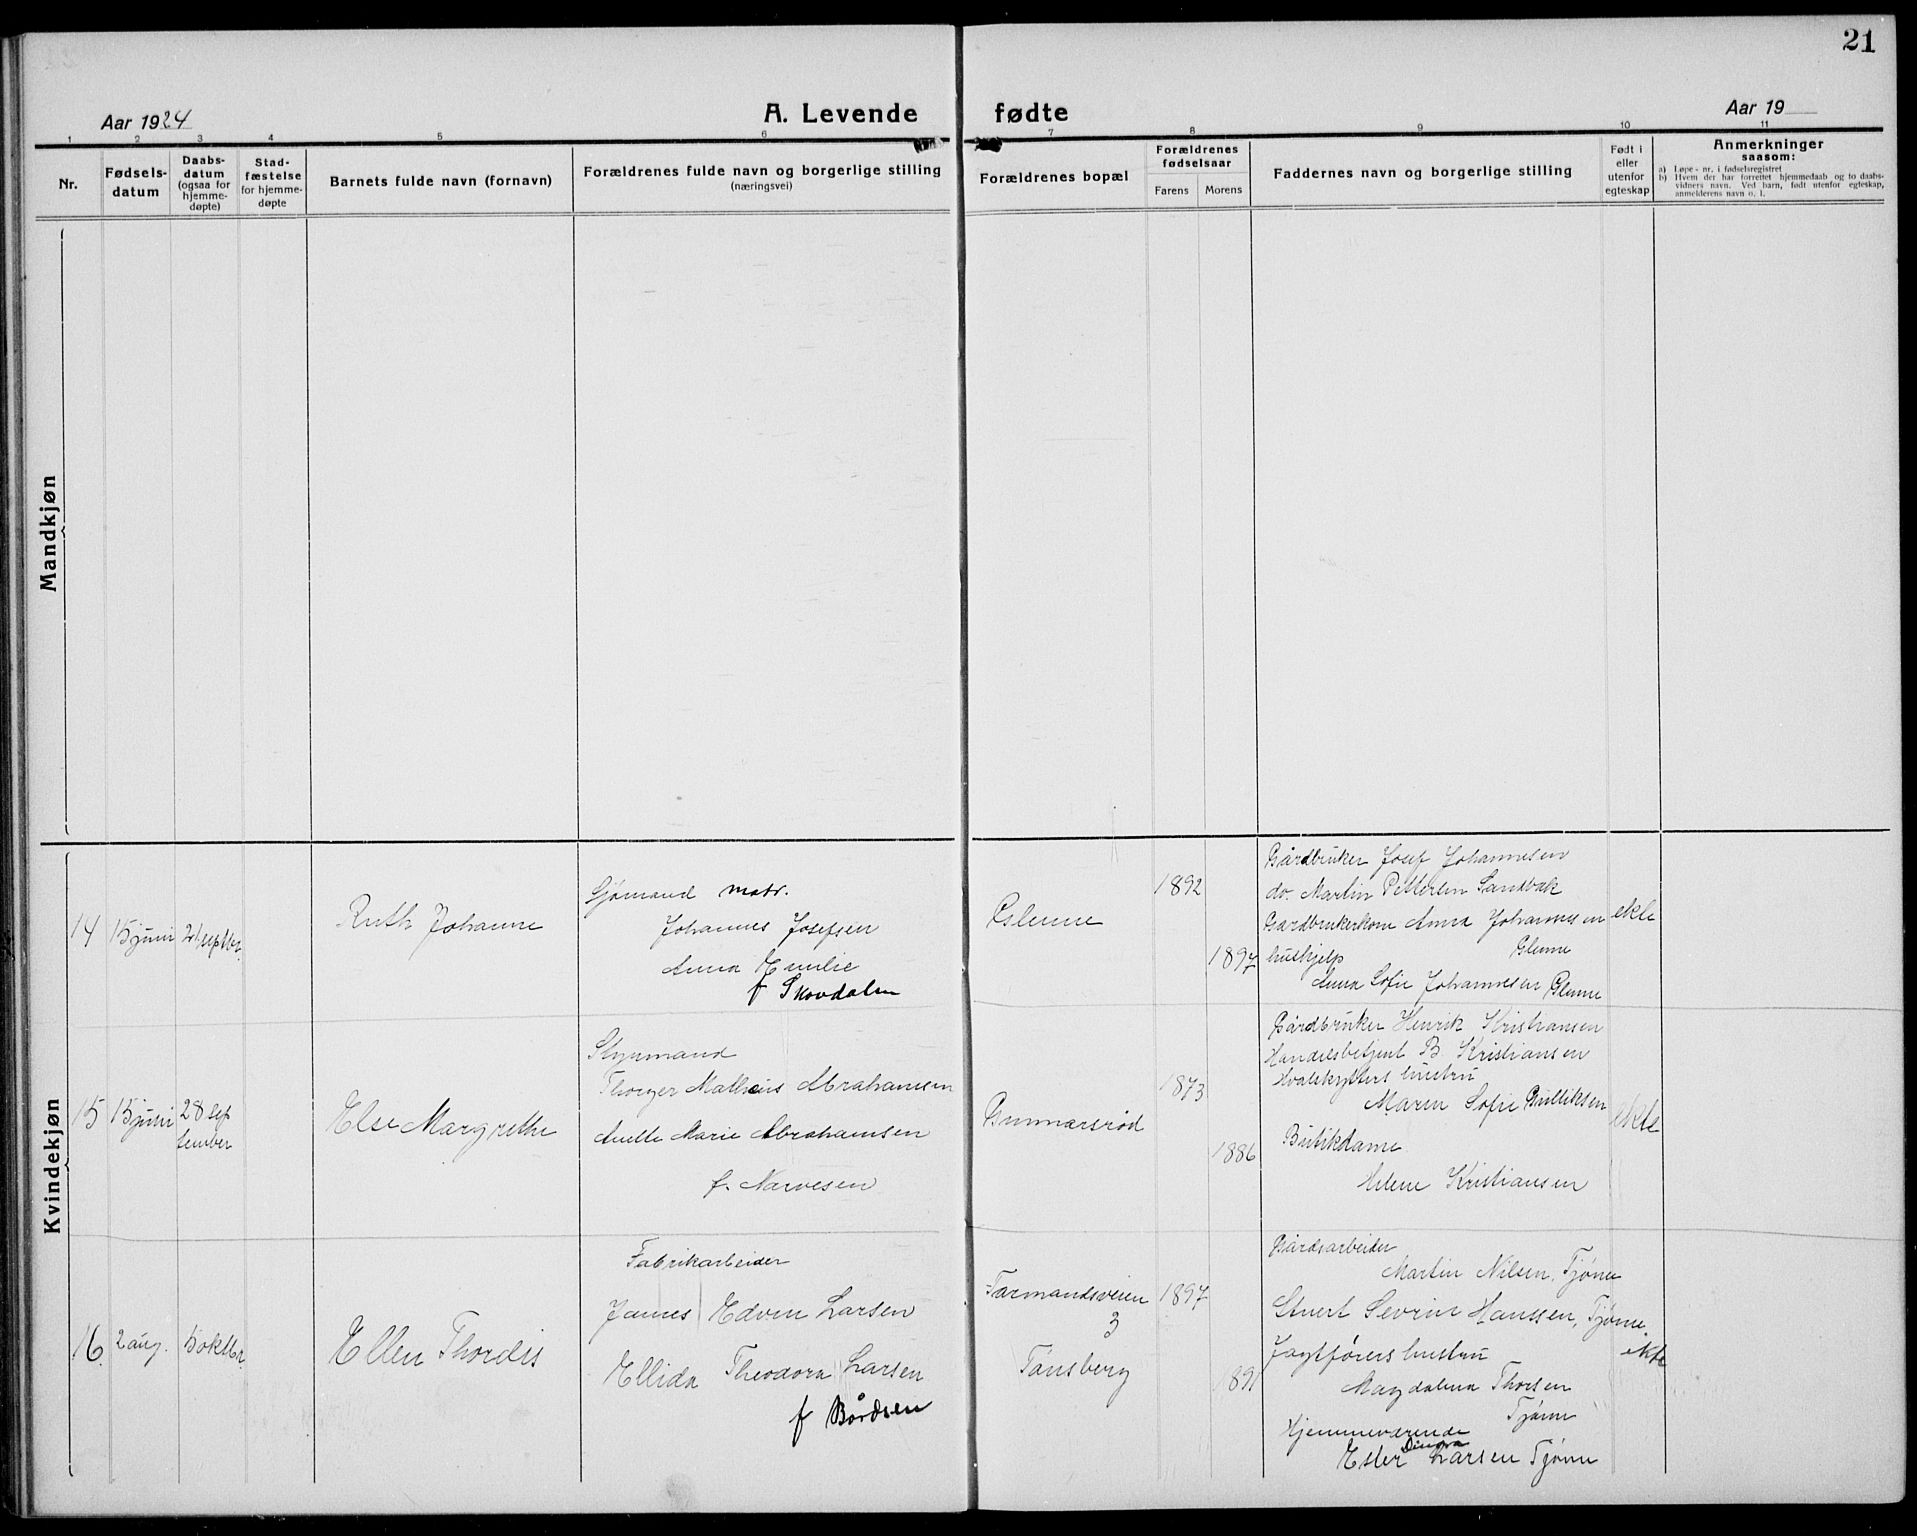 21
Aar 1924
A. Levende fødte
Aar 19
1 2 3 4 5 6 7 8 9 10 11
Nr.
Fødsels-
datum
Daabs-
datum
(ogsaa for
hjemme-
døpte)
Stad-
fæstelse
for hjemme-
døpte
Barnets fulde navn (fornavn)
Forældrenes fulde navn og borgerlige stilling
(næringsvei)
Forældrenes bopæl
Forældrenes
fødselsaar
Farens Morens
Faddernes navn og borgerlige stilling
Født i
eller
utenfor
egteskap
Anmerkninger
saasom:
a) Løpe-nr. i fødselsregistret
b) Hvem der har forrettet hjemmedaab og to daabs-
vidners navn. Ved barn, født utenfor egteskap,
anmelderens navn o. l.
Mandkjøn
Kvindekjøn
14
15 juni
21 septbr.
Ruth Johanne
Sjømand matr.
Johannes Josefsen
Anna Emilie
f Skovdalen
Glenne
1892
1897
Gårdbruker Josef Johannesen
do. Martin Pettersen Sandbæk
Gardbrukerkone Anna Johannesen
Glenne
hushjelp
Anna Sofie Johannesen Glenne
ekte
15
15 juni
28 sep
tember
Else Margrethe
Styrmand
Thorger Matheus Abrahamsen
Anette Marie Abrahamsen
f. Narvesen
Gunnarsrød
1873
1886
Gårdbruker Henrik Kristiansen
Handelsbetjent B. Kristiansen
Hvalskytters hustru
Maren Sofie Gulliksen
Butikdame
Helene Kristiansen
ekte
16.
2 aug.
5 oktbr.
Ellen Thordis
Fabrikarbeider
James Edvin Larsen
Ellida Theodora Larsen
f Bårdsen
Farmandsveien
3
Tønsberg
1897
1891
Gårdsarbeider
Martin Nilsen, Tjøme
Stuert Sevrin Hanssen, Tjøme.
Jagtførers hustru
Magdalena Thorsen
Tjøme
Hjemmeværende
Dinora
Ester Larsen Tjøme
ekte